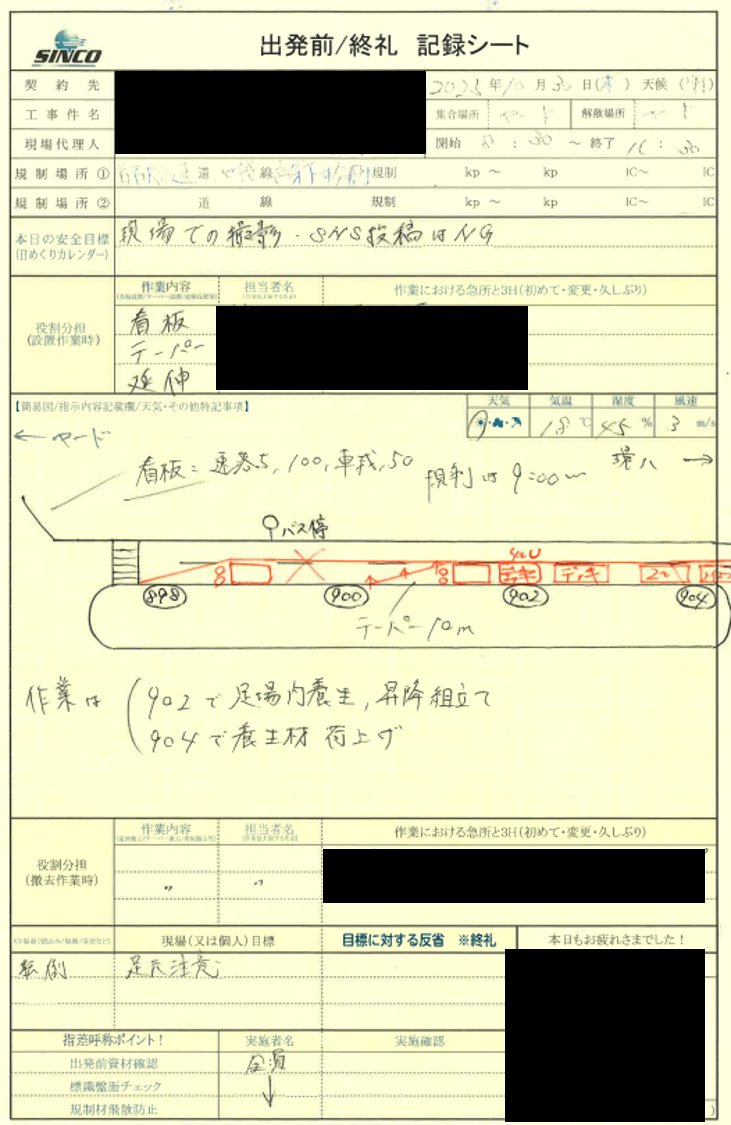 SINCO
出発前/終礼 記録シート
契約先
2025年10月30日(木) 天候(晴)
工事件名
集合場所 ヤード 解散場所 ヤード
現場代理人
開始 8:30 ~ 終了 16:30
規制場所① 道 線 規制 kp ~ kp IC~ IC
規制場所② 道 線 規制 kp ~ kp IC~ IC
本日の安全目標
(日めくりカレンダー)
現場での撮影・SNS投稿はNG
役割分担
(設置作業時)
作業内容 担当者名 作業における急所と3H(初めて・変更・久しぶり)
看板
テーパー
延伸
【簡易図/指示内容記載欄/天気・その他特記事項】
天気 気温 湿度 風速
18℃ 45% 3m/s
← ヤード
看板:速落5,100,車残,50
規制は9:00~
環八 →
バス停
8 8 421 デッキ デッキ
898 900 902 904
テーパー10m
作業は
902で足場内養生,昇降組立て
904で養生材荷上げ
役割分担
(撤去作業時)
作業内容 担当者名 作業における急所と3H(初めて・変更・久しぶり)
〃 〃
現場(又は個人)目標 目標に対する反省 ※終礼 本日もお疲れさまでした!
転倒 足元注意
指差呼称ポイント! 実施者名 実施確認
出発前資材確認 全員
標識盤面チェック ↓
規制材飛散防止